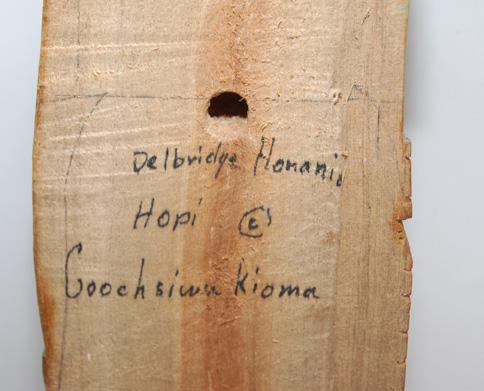 Delbridge Honanie
Hopi Ⓔ
Coochsiwukioma